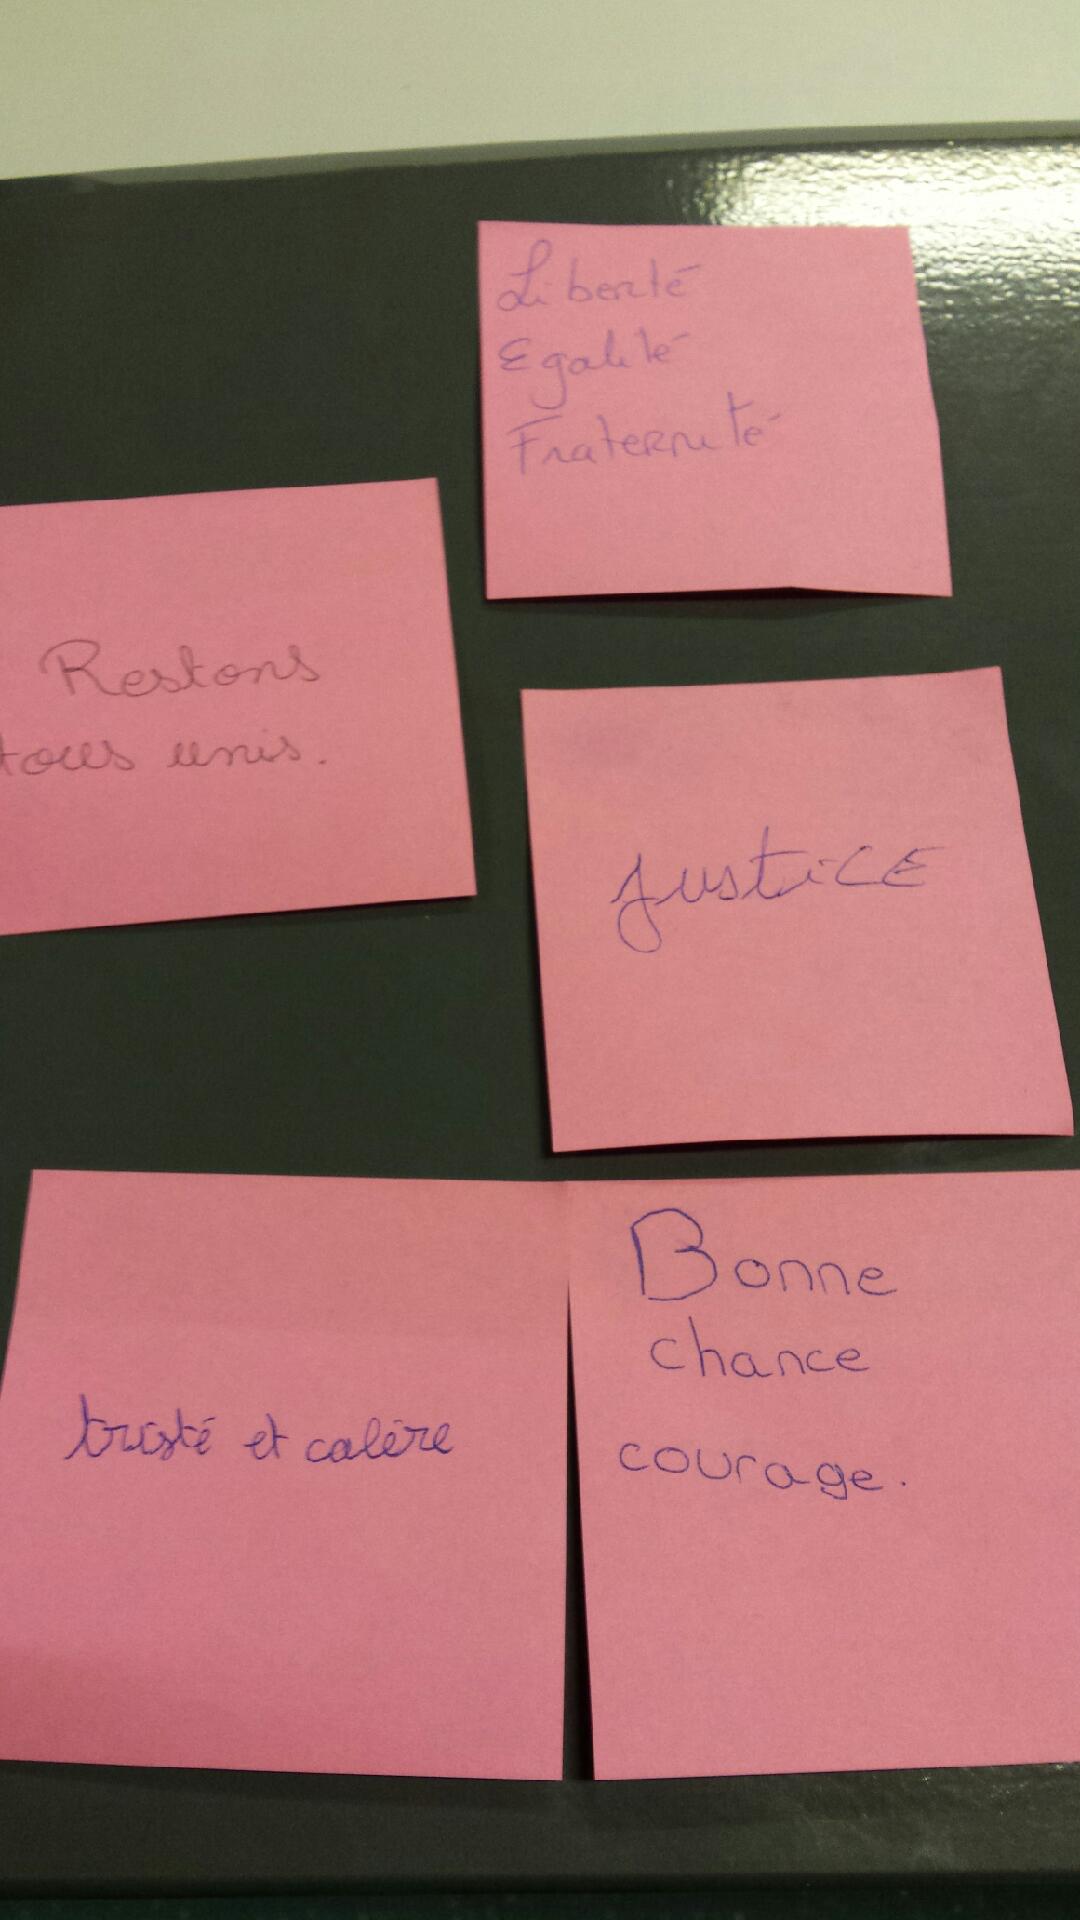 Liberté
Egalité
Fraternité
Restons
tous unis.
Justice
tristé et colère
Bonne
chance
courage.